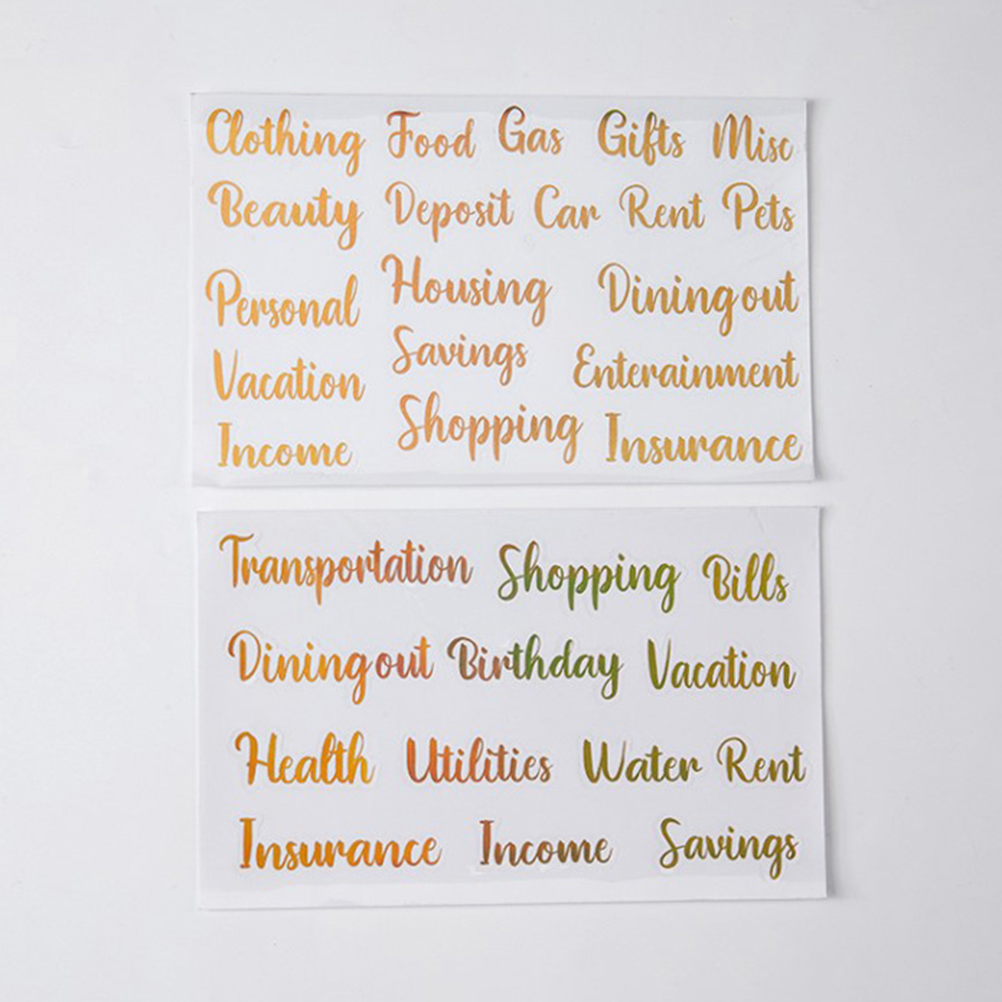 Clothing Food Gas Gifts Misc
Beauty Deposit Car Rent Pets
Personal Housing Dining out
Vacation Savings Enterainment
Income Shopping Insurance
Transportation Shopping Bills
Dining out Birthday Vacation
Health Utilities Water Rent
Insurance Income Savings